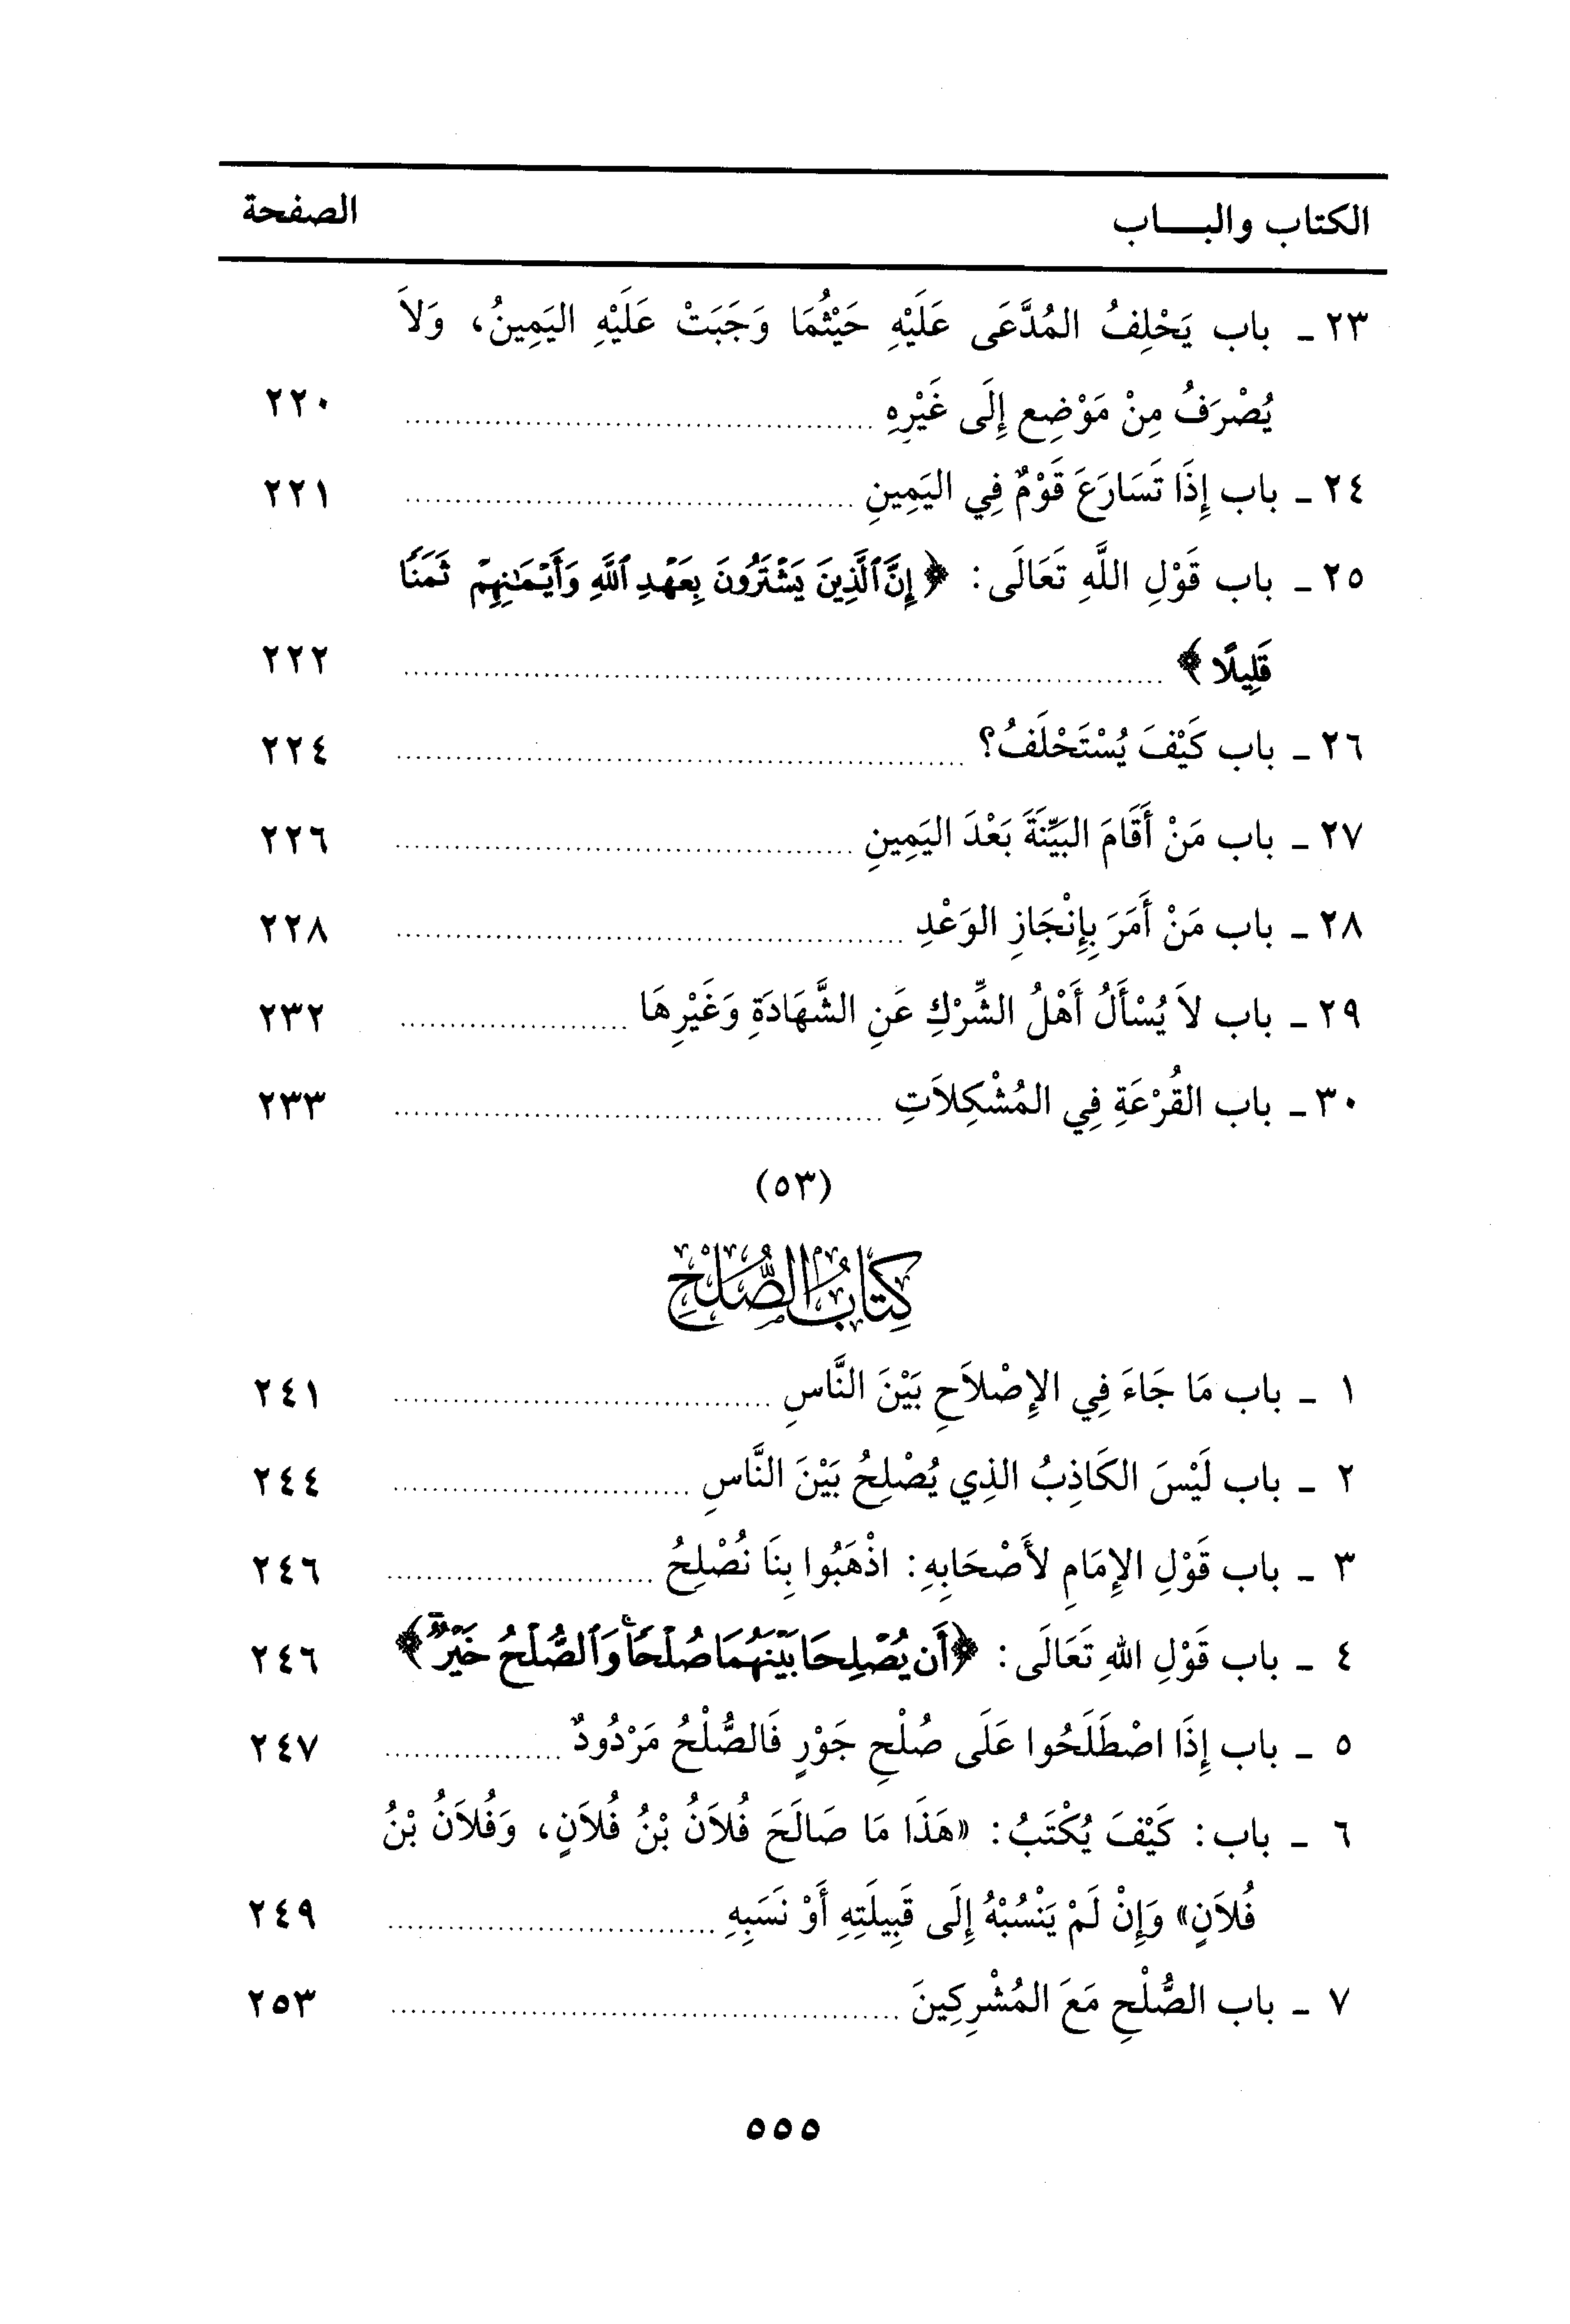 الكتاب والبـــاب الصفحة
٢٣ ـ باب يَحْلِفُ المُدَّعَى عَلَيْهِ حَيْثُمَا وَجَبَتْ عَلَيْهِ اليَمِينُ، وَلاَ
يُصْرَفُ مِنْ مَوْضِعٍ إِلَى غَيْرِهِ ........ ٢٢٠
٢٤ ـ باب إِذَا تَسَارَعَ قَوْمٌ فِي اليَمِينِ ........ ٢٢١
٢٥ ـ باب قَوْلِ اللَّهِ تَعَالَى: ﴿إِنَّ ٱلَّذِينَ يَشْتَرُونَ بِعَهْدِ ٱللَّهِ وَأَيْمَـٰنِهِمْ ثَمَنًا
قَلِيلًا﴾ ........ ٢٢٢
٢٦ ـ باب كَيْفَ يُسْتَحْلَفُ؟ ........ ٢٢٤
٢٧ ـ باب مَنْ أَقَامَ البَيِّنَةَ بَعْدَ اليَمِينِ ........ ٢٢٦
٢٨ ـ باب مَنْ أَمَرَ بِإِنْجَازِ الوَعْدِ ........ ٢٢٨
٢٩ ـ باب لاَ يُسْأَلُ أَهْلُ الشِّرْكِ عَنِ الشَّهَادَةِ وَغَيْرِهَا ........ ٢٣٢
٣٠ ـ باب القُرْعَةِ فِي المُشْكِلاَتِ ........ ٢٣٣
(٥٣)
كِتَابُ الصُّلْحِ
١ ـ باب مَا جَاءَ فِي الإِصْلاَحِ بَيْنَ النَّاسِ ........ ٢٤١
٢ ـ باب لَيْسَ الكَاذِبُ الذِي يُصْلِحُ بَيْنَ النَّاسِ ........ ٢٤٤
٣ ـ باب قَوْلِ الإِمَامِ لأَصْحَابِهِ: اذْهَبُوا بِنَا نُصْلِحُ ........ ٢٤٦
٤ ـ باب قَوْلِ اللهِ تَعَالَى: ﴿أَن يُصْلِحَا بَيْنَهُمَا صُلْحًا ۚ وَٱلصُّلْحُ خَيْرٌ ۗ﴾ ٢٤٦
٥ ـ باب إِذَا اصْطَلَحُوا عَلَى صُلْحِ جَوْرٍ فَالصُّلْحُ مَرْدُودٌ ........ ٢٤٧
٦ ـ باب: كَيْفَ يُكْتَبُ: «هَذَا مَا صَالَحَ فُلاَنُ بْنُ فُلاَنٍ، وَفُلاَنُ بْنُ
فُلاَنٍ» وَإِنْ لَمْ يَنْسُبْهُ إِلَى قَبِيلَتِهِ أَوْ نَسَبِهِ ........ ٢٤٩
٧ ـ باب الصُّلْحِ مَعَ المُشْرِكِينَ ........ ٢٥٣
٥٥٥